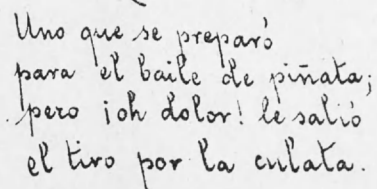 Uno que se preparó
para el baile de piñata;
pero ¡oh dolor! le salió
el tiro por la culata.